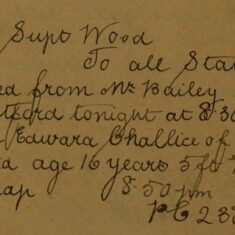 Supt Wood
To all Sta
ed from Mr Bailey
tford tonight at 8.30
Edward Challice of
d age 16 years 5 ft
ap 8.50 pm
PC 23